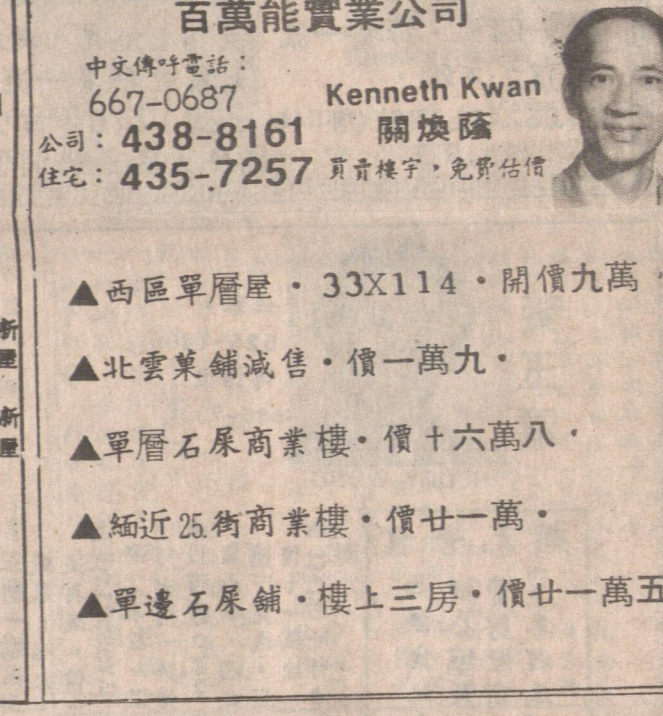 百萬能實業公司
中文傳呼電話：
667-0687
公司：438-8161
住宅：435-7257
Kenneth Kwan
關煥蔭
買賣樓宇，免費估價
▲西區單層屋・33X114・開價九萘
▲北雲菓鋪減售・價一萬九・
▲單層石屎商業樓・價十六萬八・
▲緬近25.街商業樓・價廿一萬・
▲單邊石屎鋪・樓上三房・價廿一萬五
新
屋
新
屋